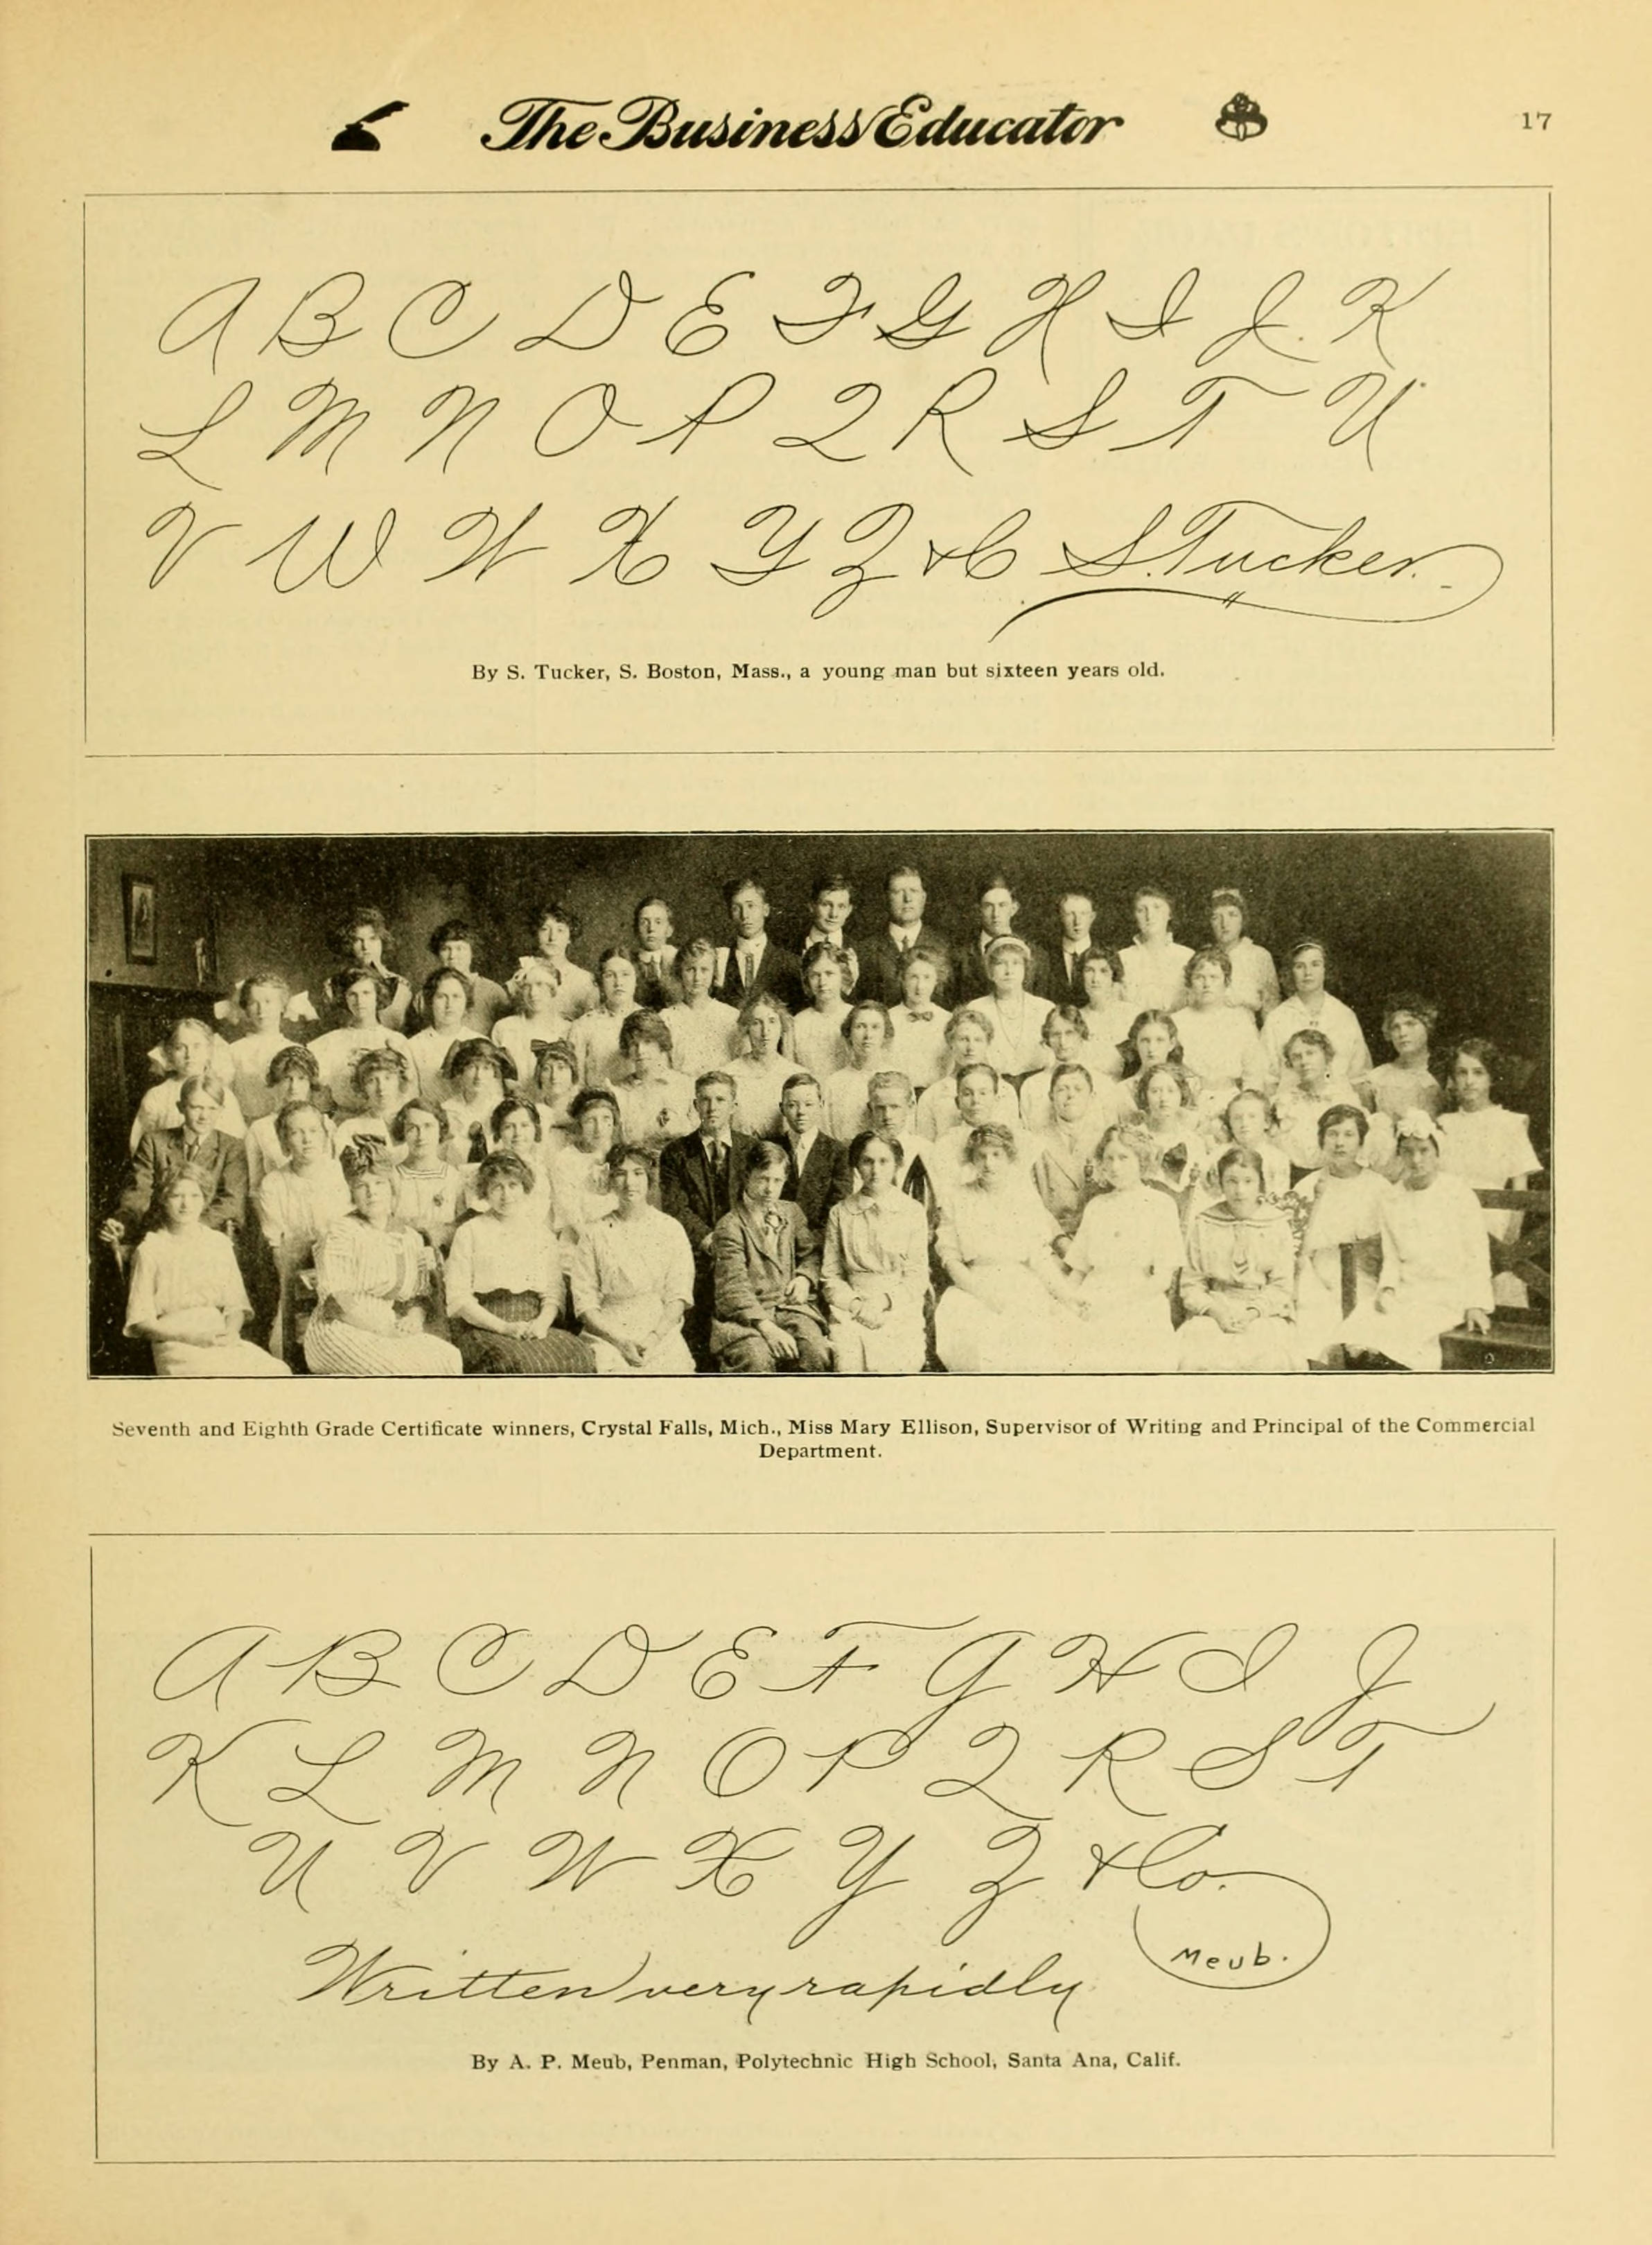 The Business Educator
17
A B C D E F G H I J. K
L M N O P Q R S T U
V W W X Y Z & C S. Tucker.
By S. Tucker, S. Boston, Mass., a young man but sixteen years old.
Seventh and Eighth Grade Certificate winners, Crystal Falls, Mich., Miss Mary Ellison, Supervisor of Writing and Principal of the Commercial
Department.
A B C D E F G H I J
K L M N O P Q R S T
U V W X Y Z & Co.
Meub.
Written very rapidly
By A. P. Meub, Penman, Polytechnic High School, Santa Ana, Calif.